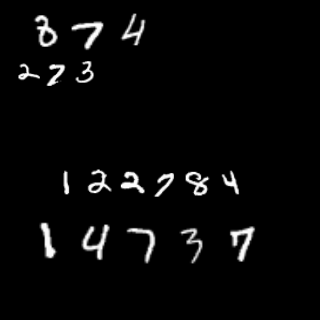 374
273
122784
14737